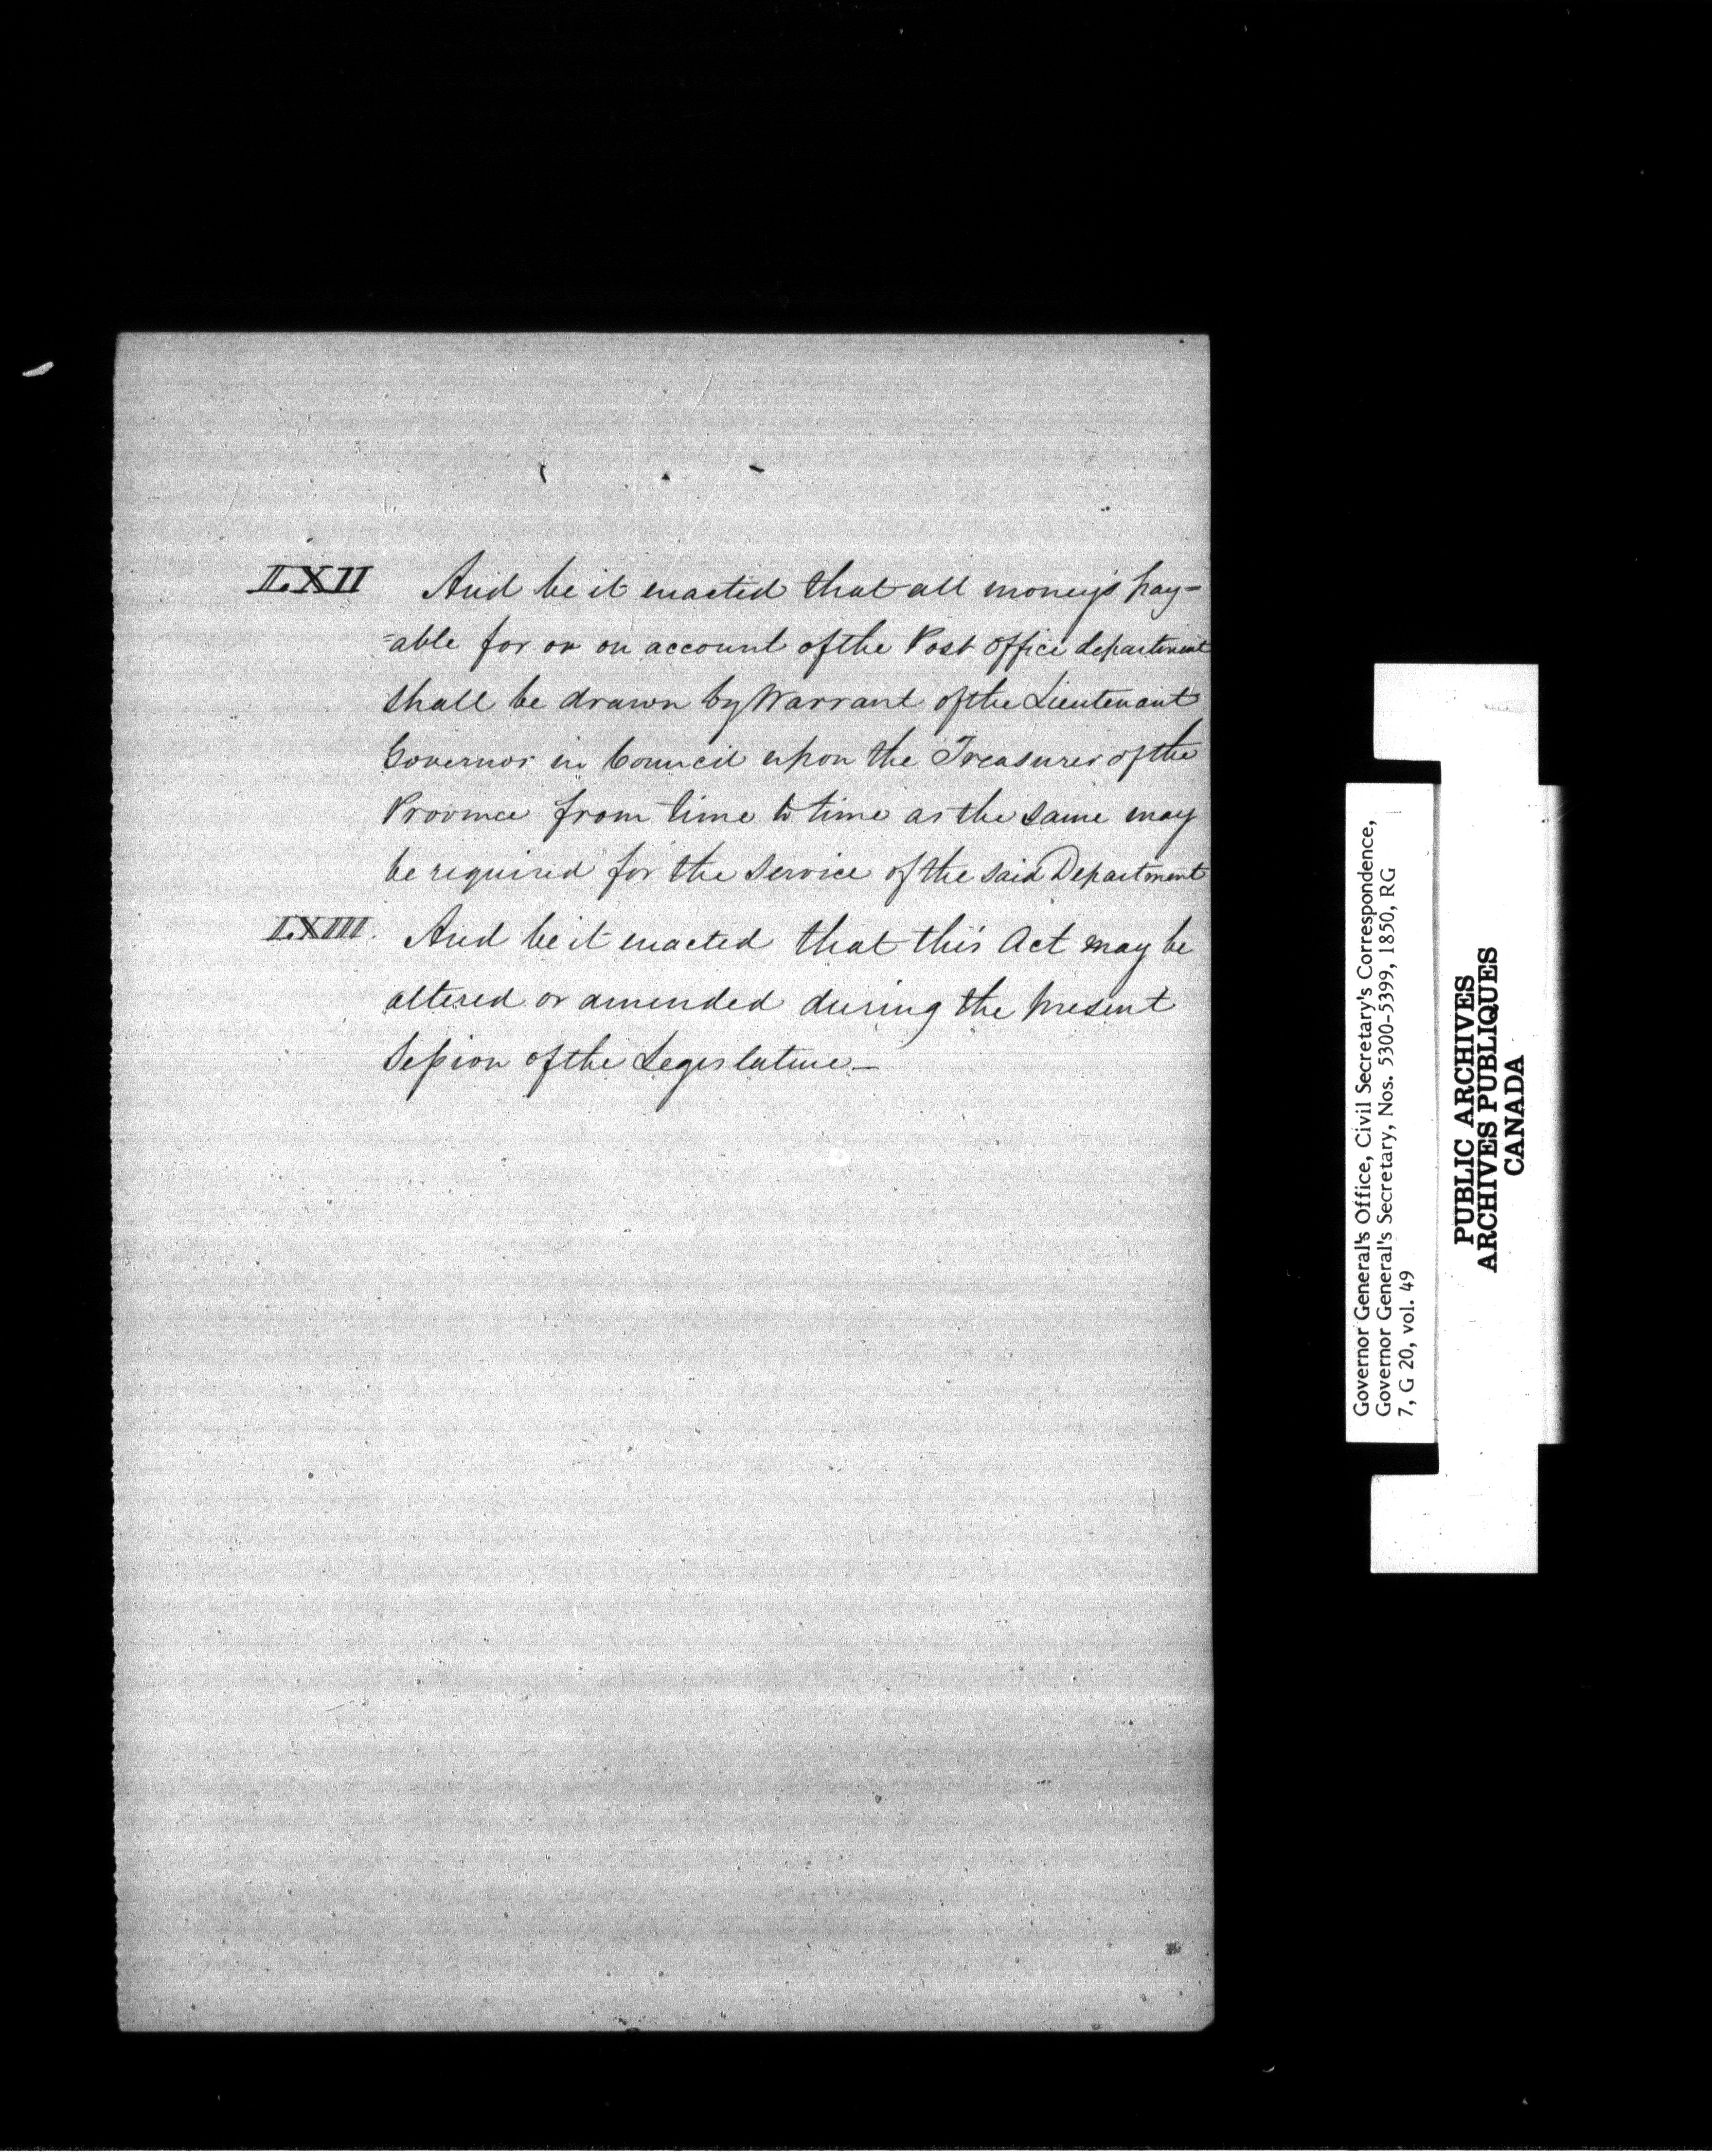 LXII And be it enacted that all moneys pay=
=able for or on account of the Post Office department
shall be drawn by Warrant of the Lieutenant
Governor in Council upon the Treasurer of the
Province from time to time as the same may
be required for the service of the said Department
LXIII. And be it enacted that this Act may be
altered or amended during the present
Session of the Legislature_
Governor General's Office, Civil Secretary's Correspondence,
Governor General's Secretary, Nos. 5300-5399, 1850, RG
7, G 20, vol. 49
PUBLIC ARCHIVES
ARCHIVES PUBLIQUES
CANADA